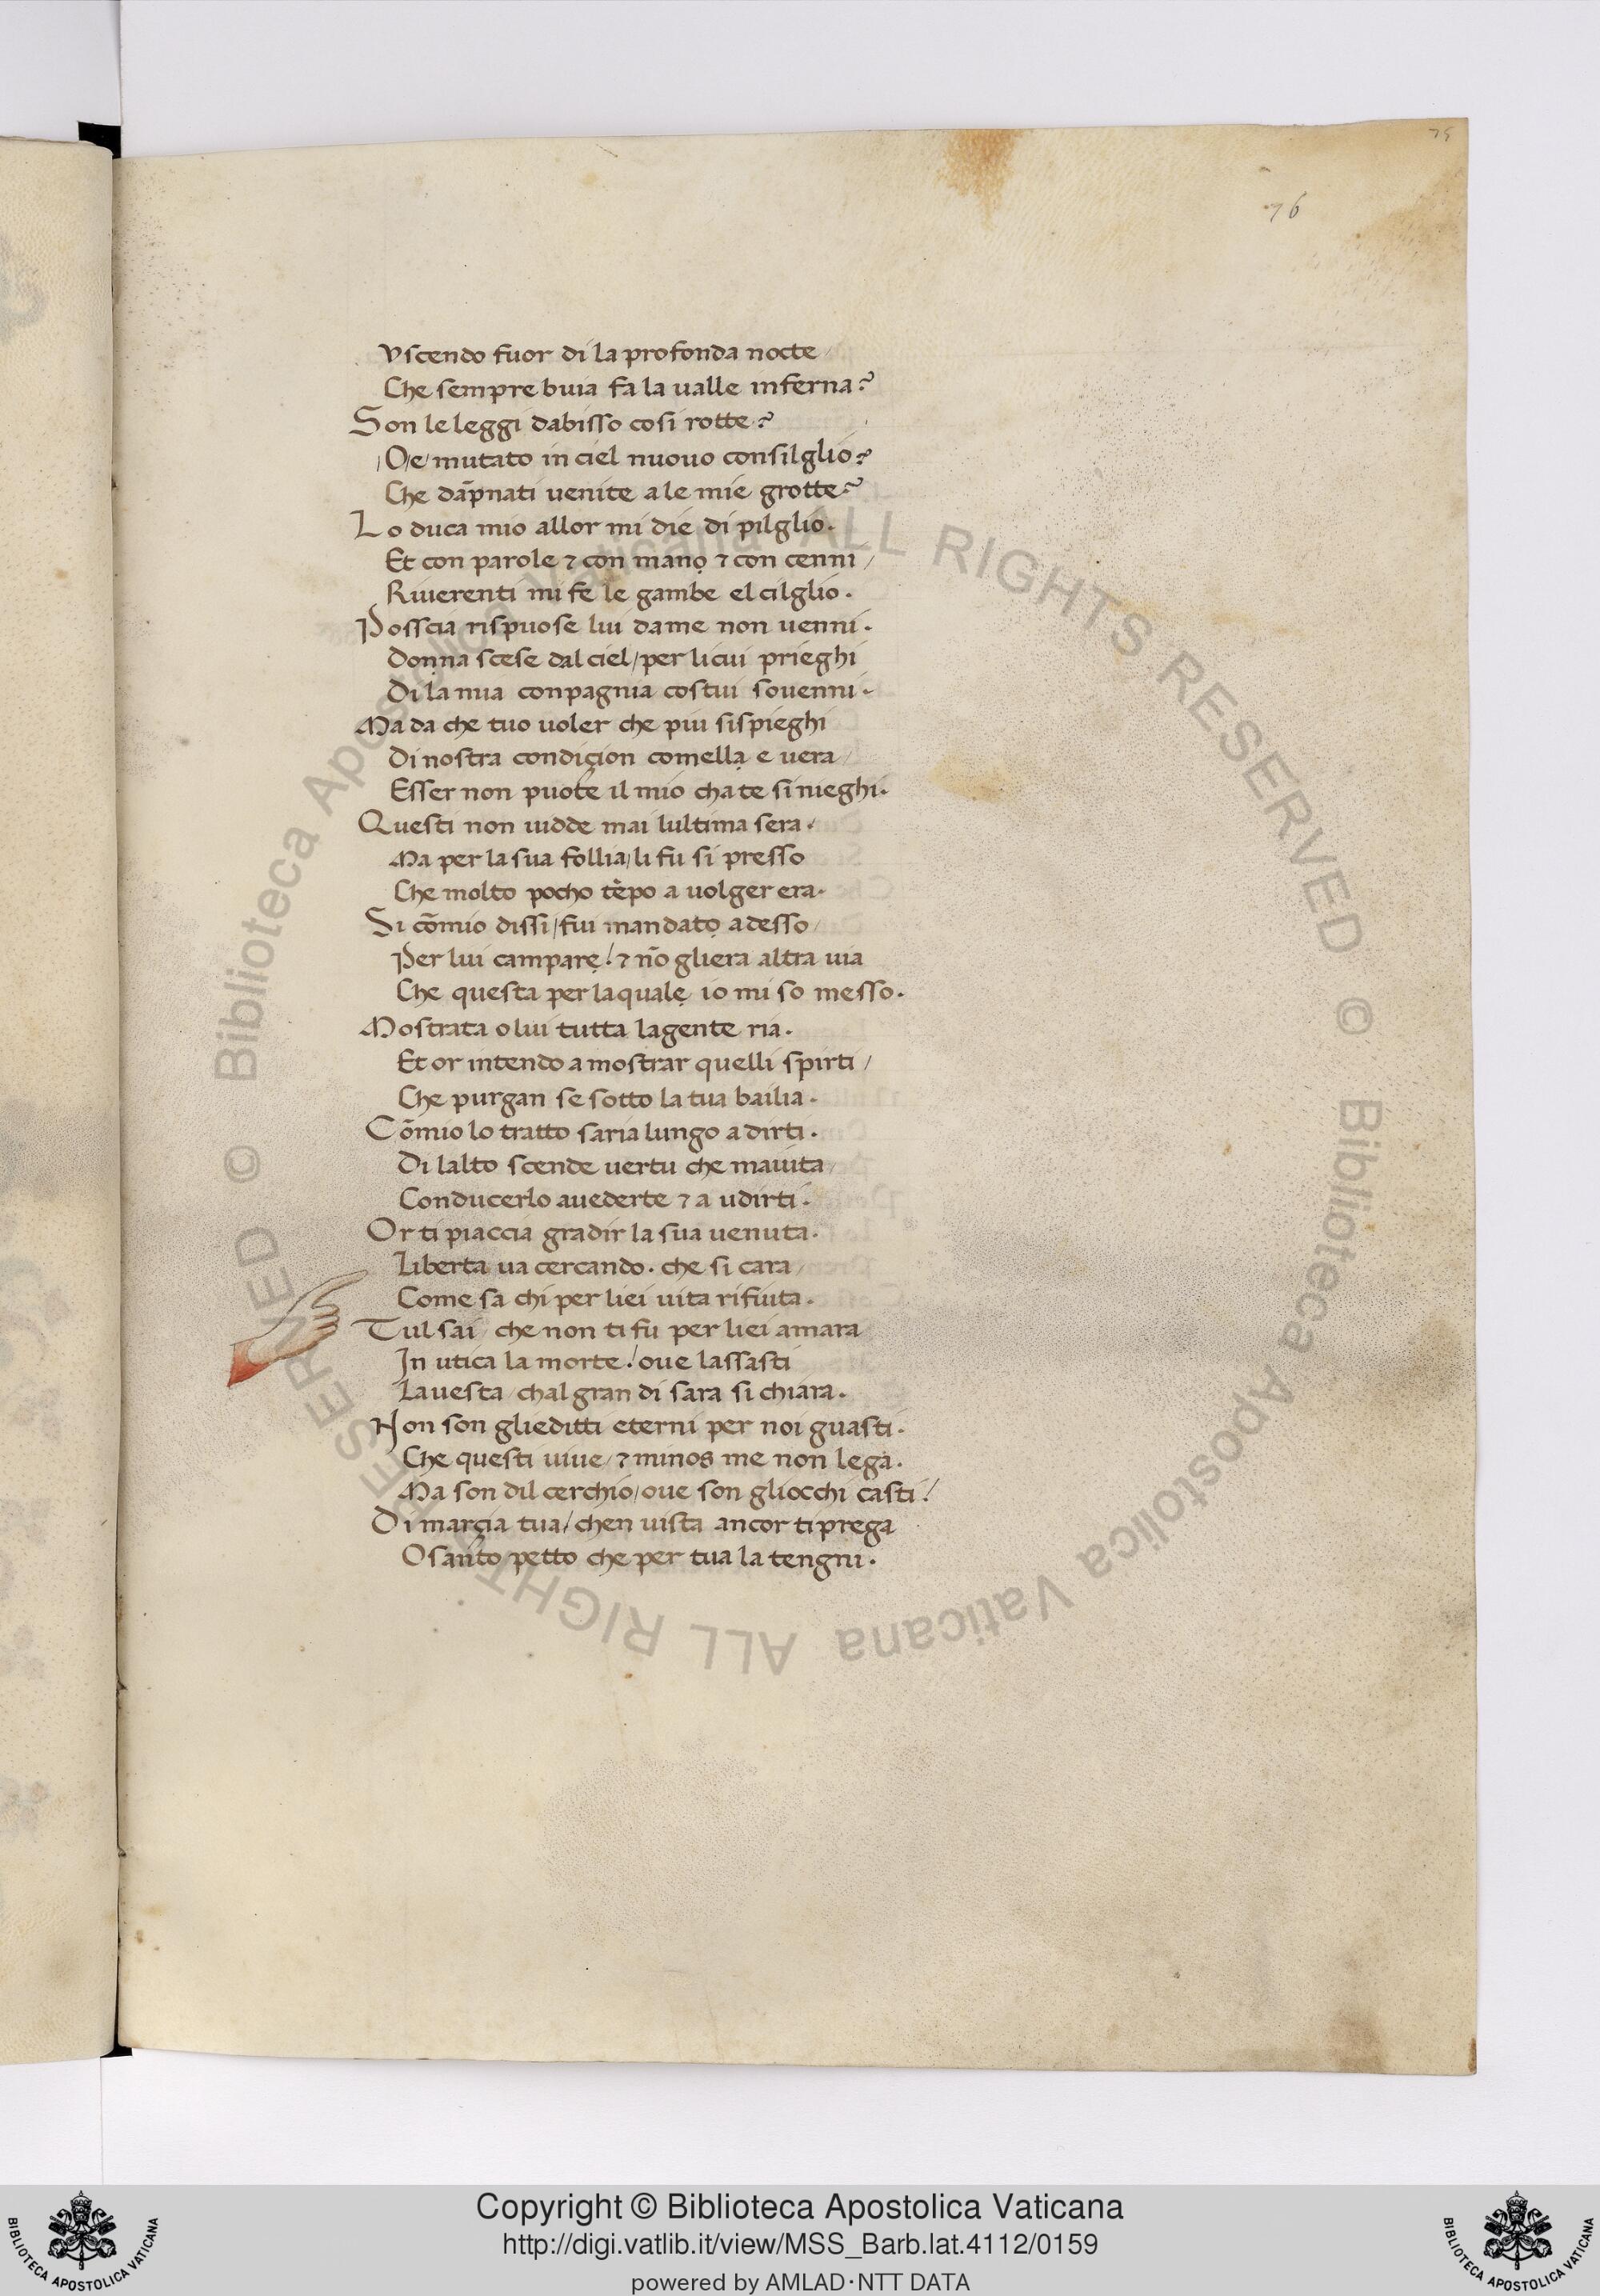 75
76
Vscendo fuor di la profonda nocte /
Che sempre buia fa la ualle inferna?
Son le leggi dabisso cosi rotte?
/O/e/ mutato in ciel nuouo consilglio?
Che dāpnati uenite a le mie grotte?
Lo duca mio allor mi die di pilglio.
Et con parole ⁊ con manọ ⁊ con cenni /
Riuerenti mi fe le gambe el cilglio.
Posscia rispuose lui da me non uenni.
Donna scese dal ciel / per li cui prieghi
Di la mia conpagnia costui souenni.
Ma da che tuo uoler che piu sispieghi
Di nostra condiçion comellạ e uera /
Esser non puote il mio cha te si nieghi.
Questi non uidde mai lultima sera.
Ma per la sua follia / li fu si presso
Che molto pocho tēpo a uolger era.
Si cōmio dissi / fui mandatọ adesso /
Per lui camparẹ! ⁊ nō gliera altra uia
Che questa per la qualẹ io mi so messo.
Mostrata o lui tutta la gente ria.
Et or intendo a mostrar quelli spirti /
Che purgan se sotto la tua bailia.
Cōmio lo tratto saria lungo a dirti.
Di lalto scende uertu che mauita /
Conducerlo auederte ⁊ a udirti.
Or ti piaccia gradir la sua uenuta.
Liberta ua cercando. che si cara /
Come sa chi per liei uita rifiuta.
Tul sai / che non ti fu per liei amara
In utica la morte! oue lassasti
La uesta / chal gran di sara si chiara.
Non son glieditti eterni per noi guasti.
Che questi uiue / ⁊ minos me non lega.
Ma son dil cerchio / oue son gliocchi casti!
Di marçia tua / chen uista ancor ti prega
O sancto petto che per tua la tengni.
© Biblioteca Apostolica Vaticana ALL RIGHTS RESERVED © Biblioteca Apostolica Vaticana ALL RIGHTS RESERVED
Copyright © Biblioteca Apostolica Vaticana
http://digi.vatlib.it/view/MSS_Barb.lat.4112/0159
powered by AMLAD·NTT DATA
BIBLIOTECA APOSTOLICA VATICANA
BIBLIOTECA APOSTOLICA VATICANA